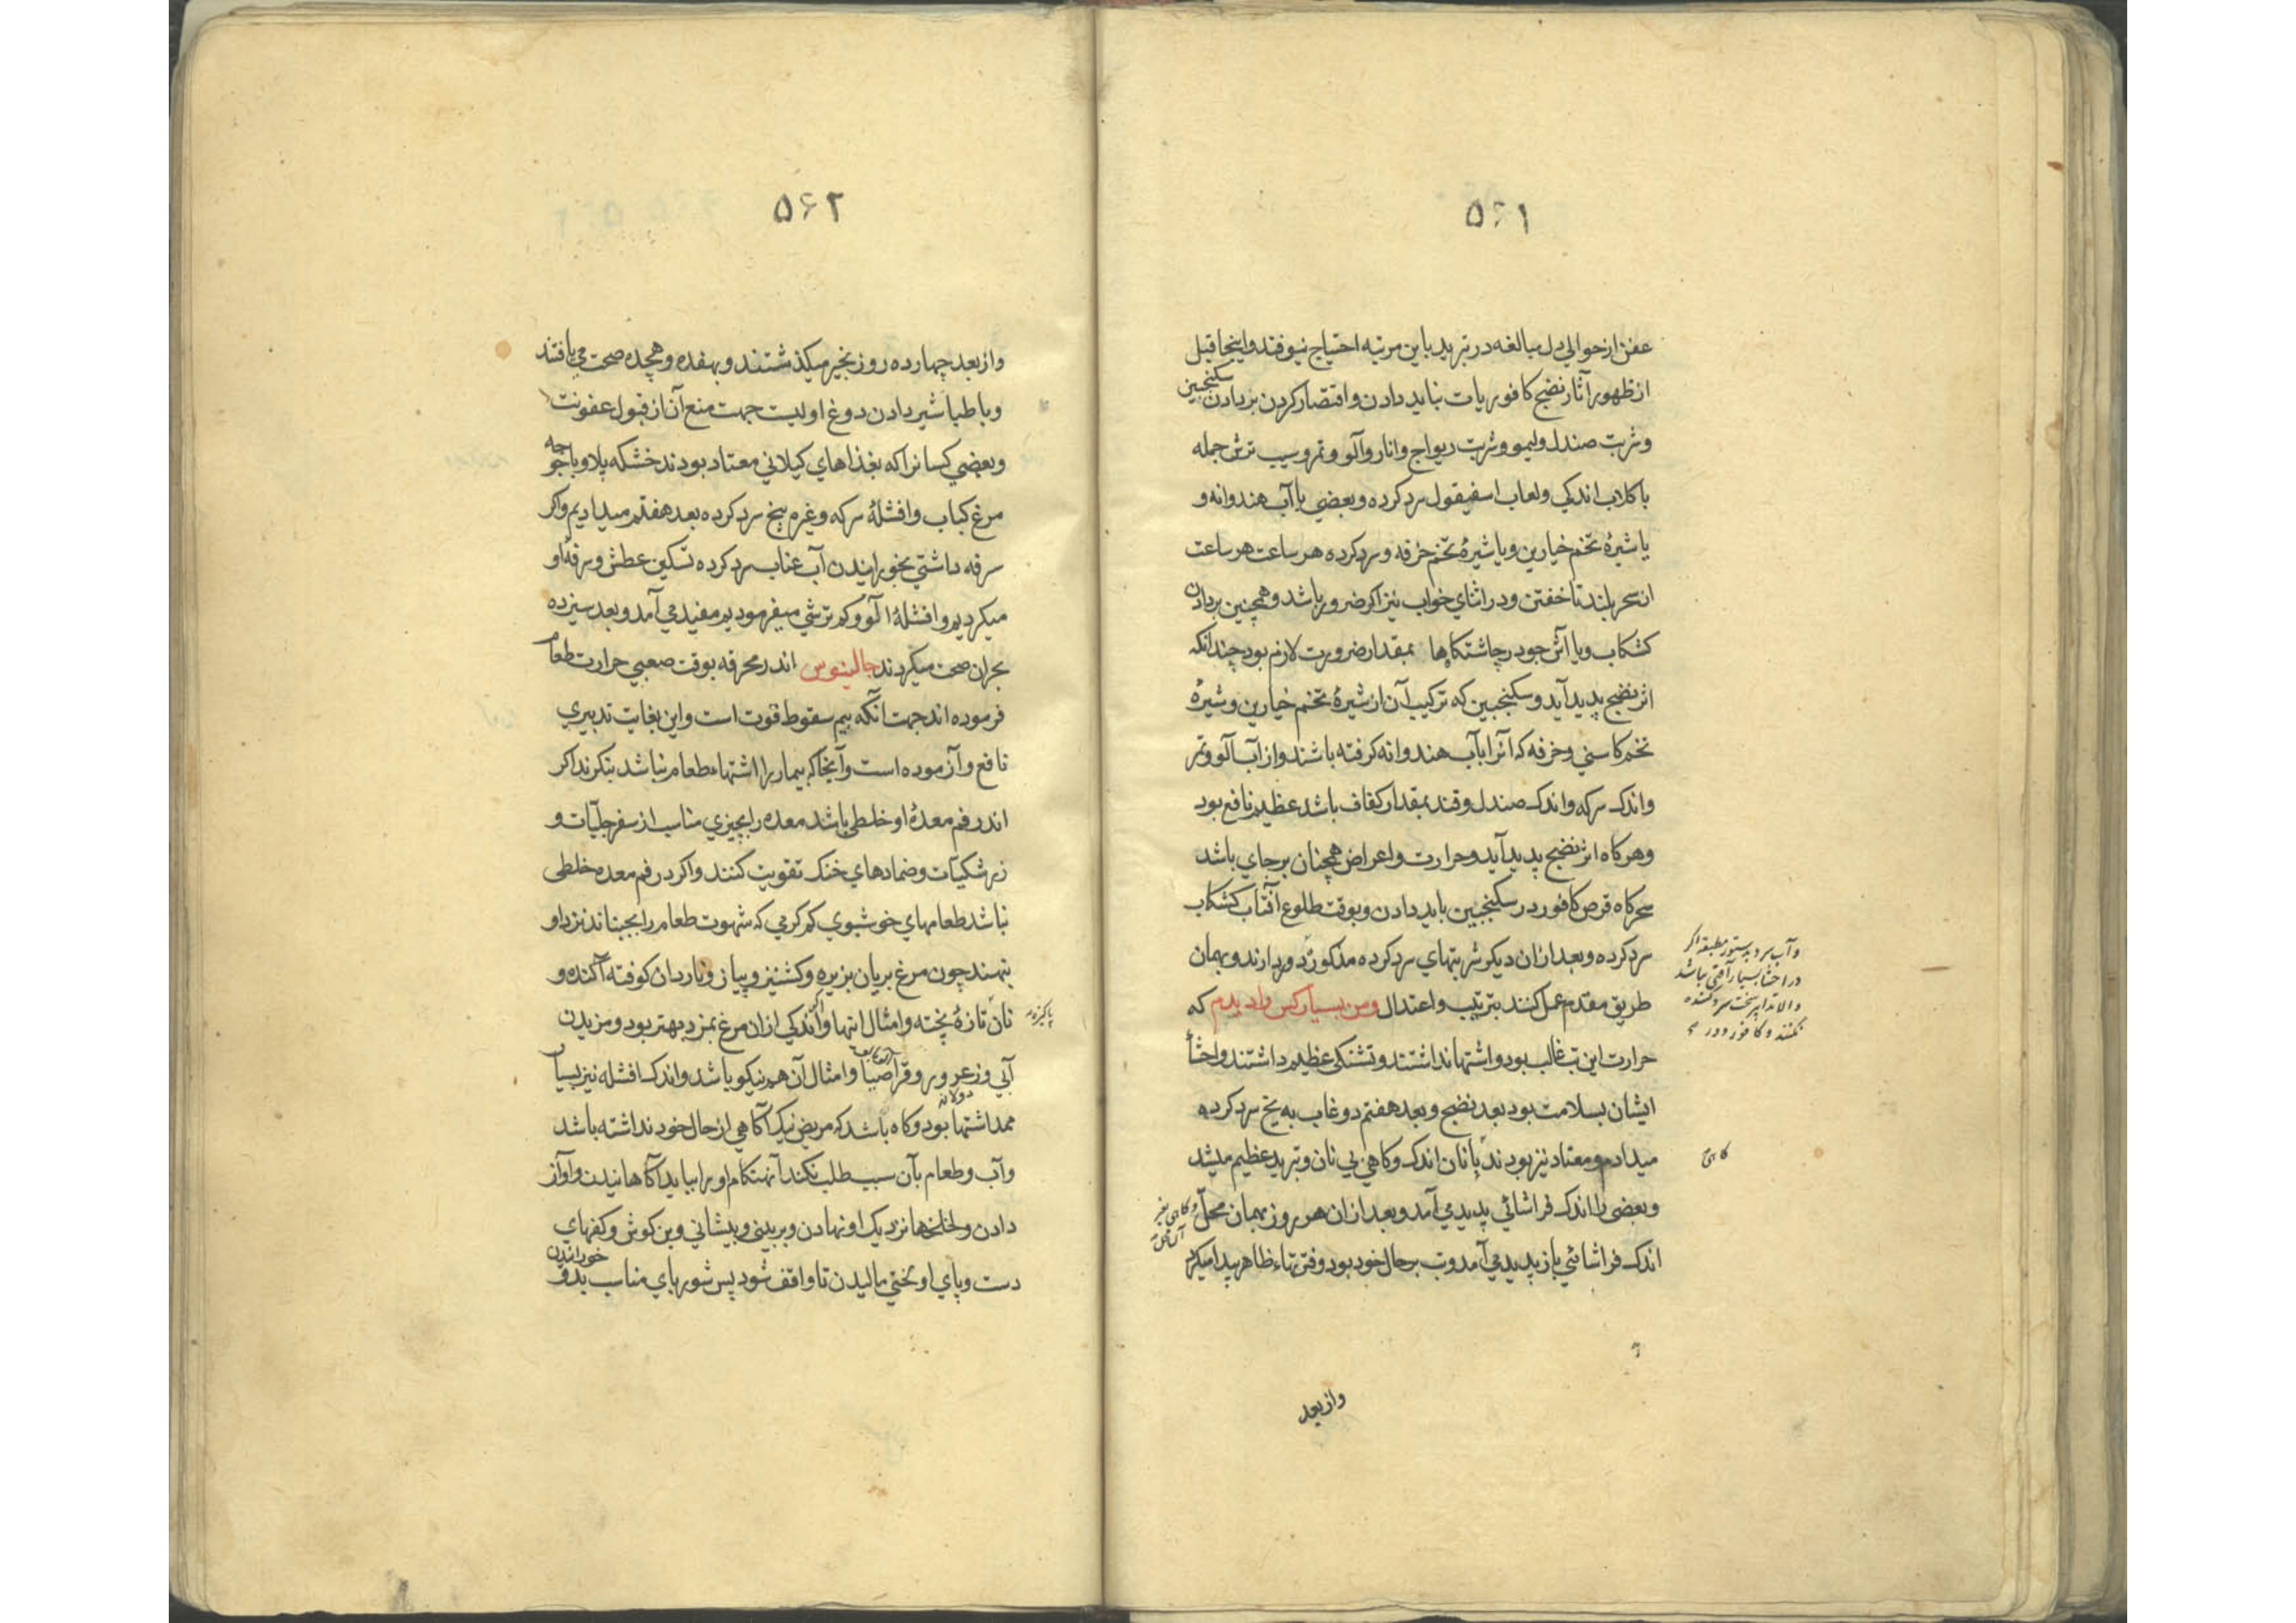 ۵۶۱
عفن از حوالي دل مبالغه در تبرید باین مرتبه احتیاج نیوفتد و اینجا قبل
از ظهور آثار نضج کافوریات نباید دادن و اقتصار کردن بر دادن سکنجبین
و شربت صندل و لیمو و شربت ریواج و انار و آلو و تمر و سیب ترش جمله
با کلاب اندکي و لعاب اسفیقول سرد کرده و بعضي با آب هندوانه و
یا شیرهٔ تخم خیارین و یا شیرهٔ تخم خرفه و سرد کرده هر ساعت هر ساعت
از سحر بلند تا خفتن و در اثناي خواب نیز اکر ضرور باشد و همچنین بر دادن
کشکاب و یا آش جو در چاشتکاهها بمقدار ضرورت لازم بود چندانکه
اثر نضج پدید آید و سکنجبین که ترکیب آن از شیرهٔ تخم خیارین و شیرهٔ
تخم کاسني و خرفه که آنرا بآب هندوانه کرفته باشند و از آب آلو و تمر
و اندک سرکه و اندک صندل و قند بمقدار کفاف باشد عظیم نافع بود
و هرکاه اثر نضج پدید آید و حرارت و اعراض همچنان بر جاي باشد
سحرکاه قرص کافور در سکنجبین باید دادن و بوقت طلوع آفتاب کشکاب
سرد کرده و بعد از ان دیکر شربتهاي سرد کرده مذکور دهند و بهمان
طریق مقدم عمل کنند بترتیب و اعتدال و من بسیار کس را دیدم که
حرارت این تب غالب بود و اشتها نداشتند و تشنکی عظیم داشتند و احشا
ایشان بسلامت بود بعد نضج و بعد هفتم دوغاب به یخ سرد کرده
میدادم و معتاد نیز بودند با نان اندک و کاهي بي نان و تبرید عظیم میشد
و بعضی را اندک فراشائي پدید مي آمد و بعد از ان هر روز بهمان محل
اندک فراشائي باز پدید مي آمد و تب بر حال خود بود و فتق تاء ظاهر پیدا میکرد
و آب سرد بدستور مطبقه اکر
در احشا بسیار آفتی نباشد
والا تدابیر سخت سرد کننده
نکنند و کافور
کاهی
و کاهی بغیر
آن محل
و از بعد
۵۶۲
و از بعد چهارده روز بخیر میکذشتند و بهفده و هجده صحت مي یافتند
و با طباشیر دادن دوغ اولیست جهت منع آن از قبول عفونت
و بعضي کسانرا که بغذاهاي کیلاني معتاد بودند خشکه پلاو با جوجه
مرغ کباب و افشلهٔ سرکه و غیره بیخ سرد کرده بعد هفتم میدادیم و اکر
سرفه داشتي بخورانیدن آب عناب سرد کرده تسکین عطش و سرفهٔ او
میکردیم و افشلهٔ آلو و کم ترشي میفرمودیم مفید مي آمد و بعد سیزده
بحران صحت میکردند جالینوس اندر محرقه بوقت صعبي حرارت طعام
فرموده اند جهت آنکه بیم سقوط قوت است و این بغایت تدبیري
نافع و آزموده است و آنجا که بیمار را اشتهاء طعام نباشد بنکرند اکر
اندر فم معدهٔ او خلطي باشد معده را بچیزي مناسب از سفرجلیات و
زرشکیات و ضمادهاي خنک تقویت کنند و اکر در فم معده خلطی
نباشد طعامهاي خوشبوي کم کرمي که شهوت طعام را بجنباند نزد او
بنهند چون مرغ بریان بزیره و کشنیز و پیاز و ناردان کوفته آکنده و
نان تازهٔ پخته و امثال اینها و اندکي از ان مرغ بمزد بهتر بود و مزیدن
آبي و زعرور و قراصیا و امثال آن هم نیکو باشد و اندک افشله نیز بسیار
ممد اشتها بود و کاه باشد که مریض نیک آکاهي از حال خود نداشته باشد
و آب و طعام بآن سبب طلب نکند آنهنکام او را بباید آکاهانیدن و آواز
دادن و لخلخها نزدیک او نهادن و بر بیني و پیشاني و بن کوش و کفهاي
دست و پاي او بختي مالیدن تا واقف شود پس شورباي مناسب بدو خوراندن
پاکیزه